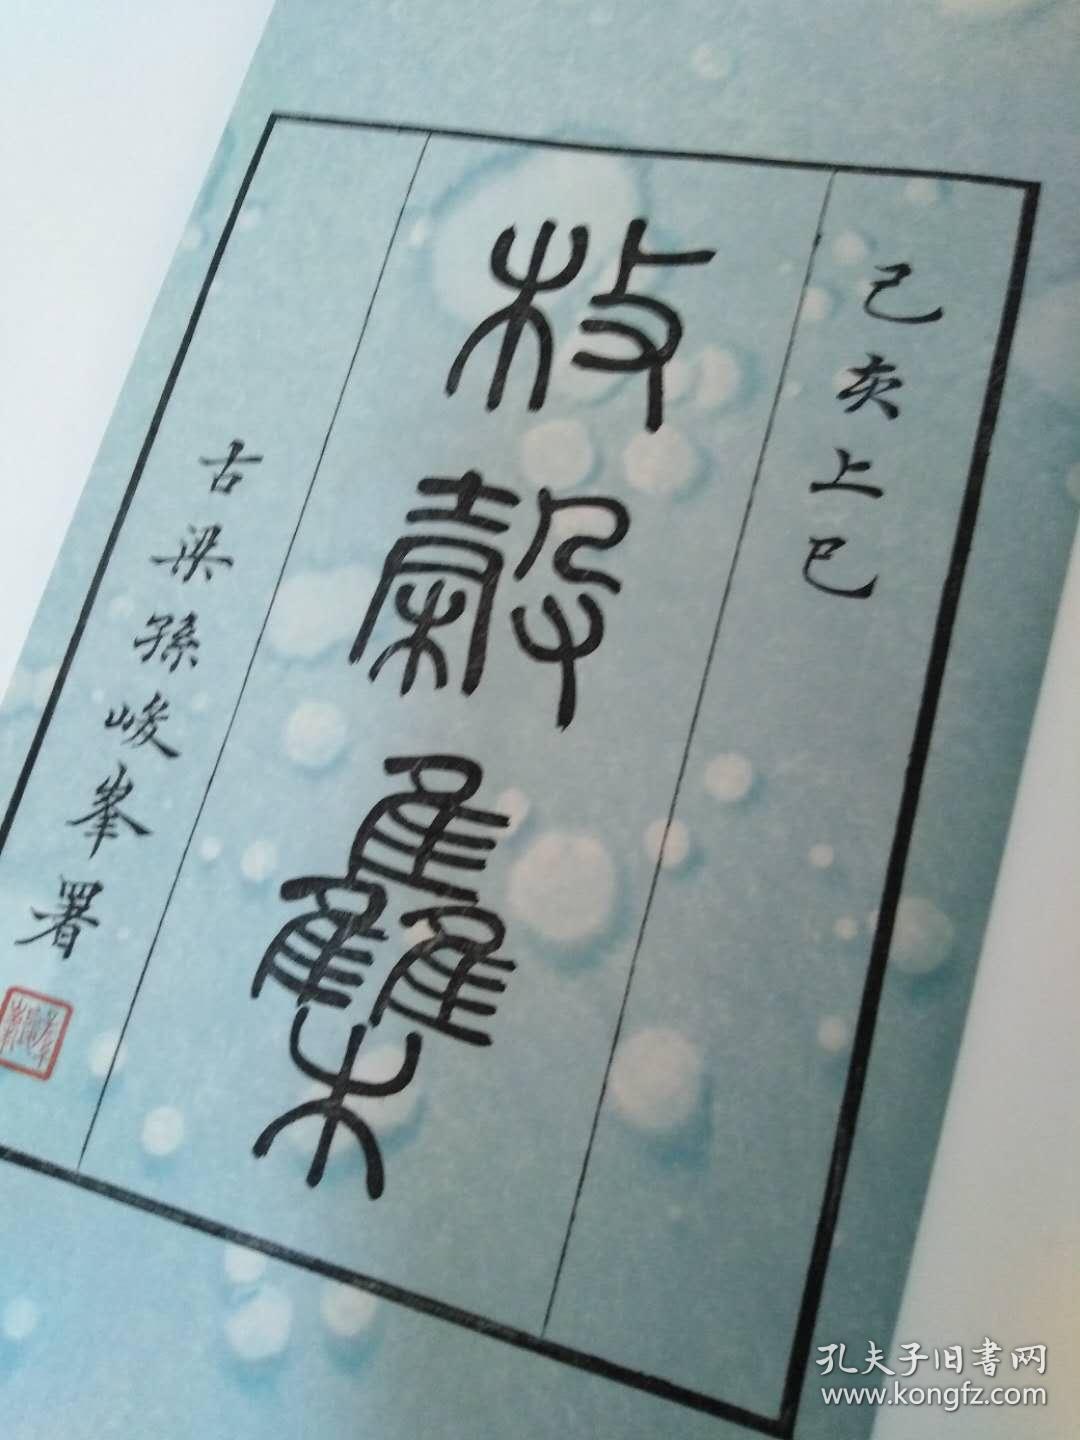 己亥上巳
枚穀雧
古梁孫峻峯署
孔夫子旧書网
www.kongfz.com